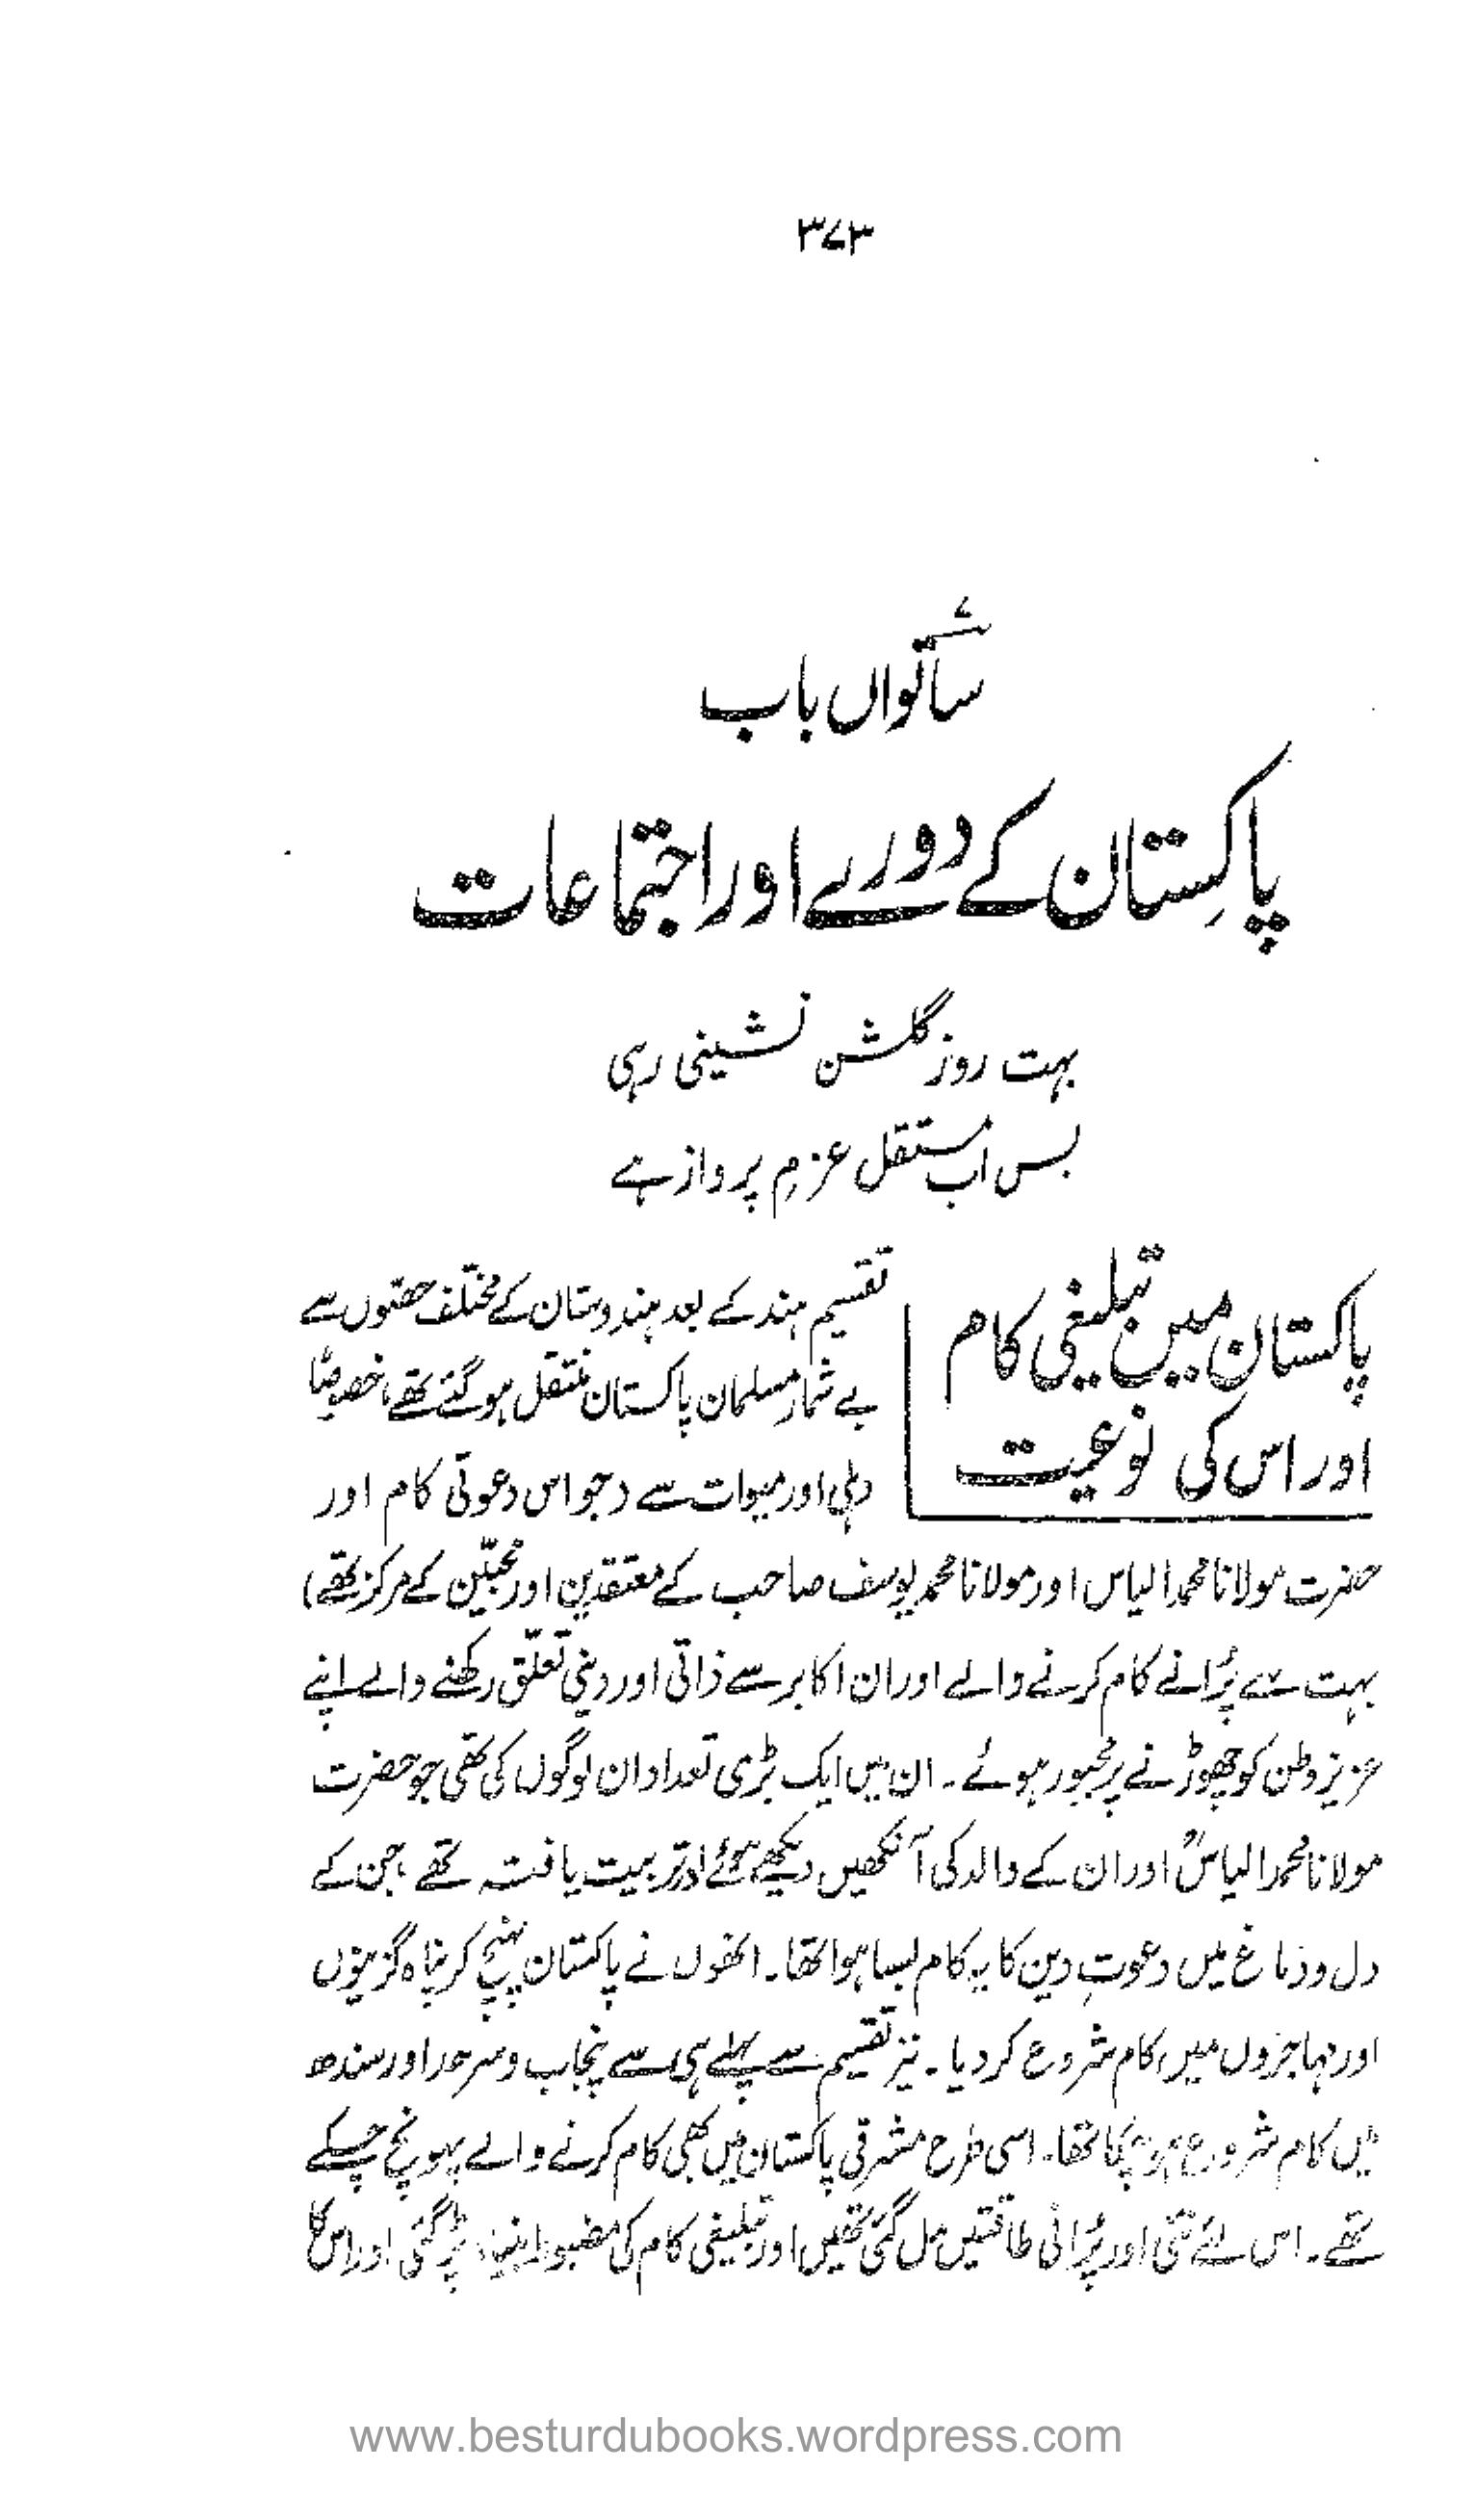 ۳۷۳
ساتواں باب
پاکستان کے دورے اور اجتماعات
بہت روز گلشن نشینی رہی
بس اب مستقل عزمِ پرواز ہے
پاکستان میں تبلیغی کام
اور اس کی نوعیت
تقسیم ہند کے بعد ہندوستان کے مختلف حصّوں سے
بے شمار مسلمان پاکستان منتقل ہو گئے تھے، خصوصًا
دہلی اور میوات سے (جو اس دعوتی کام اور
حضرت مولانا محمد الیاس اور مولانا محمد یوسف صاحب کے معتقدین اور محبّین کے مرکز تھے)
بہت سے پُرانے کام کرنے والے اور ان اکابر سے ذاتی اور دینی تعلّق رکھنے والے اپنے
عزیز وطن کو چھوڑنے پر مجبور ہوئے۔ ان میں ایک بڑی تعداد ان لوگوں کی تھی جو حضرت
مولانا محمد الیاسؒ اور ان کے والد کی آنکھیں دیکھے ہوئے اور تربیت یافتہ تھے، جن کے
دل و دماغ میں دعوتِ دین کا یہ کام بسا ہوا تھا۔ انھوں نے پاکستان پہنچ کر پناہ گزینوں
اور مہاجروں میں کام شروع کر دیا۔ نیز تقسیم سے پہلے ہی سے پنجاب و سرحد اور سندھ
میں کام شروع ہو چکا تھا۔ اسی طرح مشرقی پاکستان میں بھی کام کرنے والے پہونچ چکے
تھے۔ اس لئے نئی اور پُرانی طاقتیں مل گئی تھیں اور تبلیغی کام کی مضبوط بنیاد پڑ گئی اور اس کا
www.besturdubooks.wordpress.com